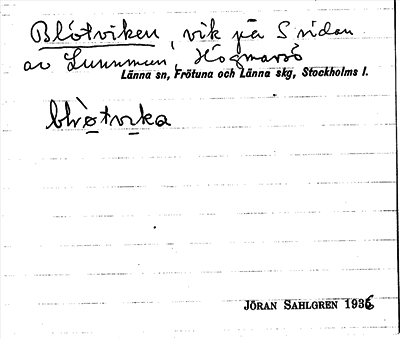 Blötviken, vik på S sidan
av Lummun, Högmarsö
Länna sn, Frötuna och Länna skg, Stockholms l.
blɷ̀tvika
JÖRAN SAHLGREN 1936